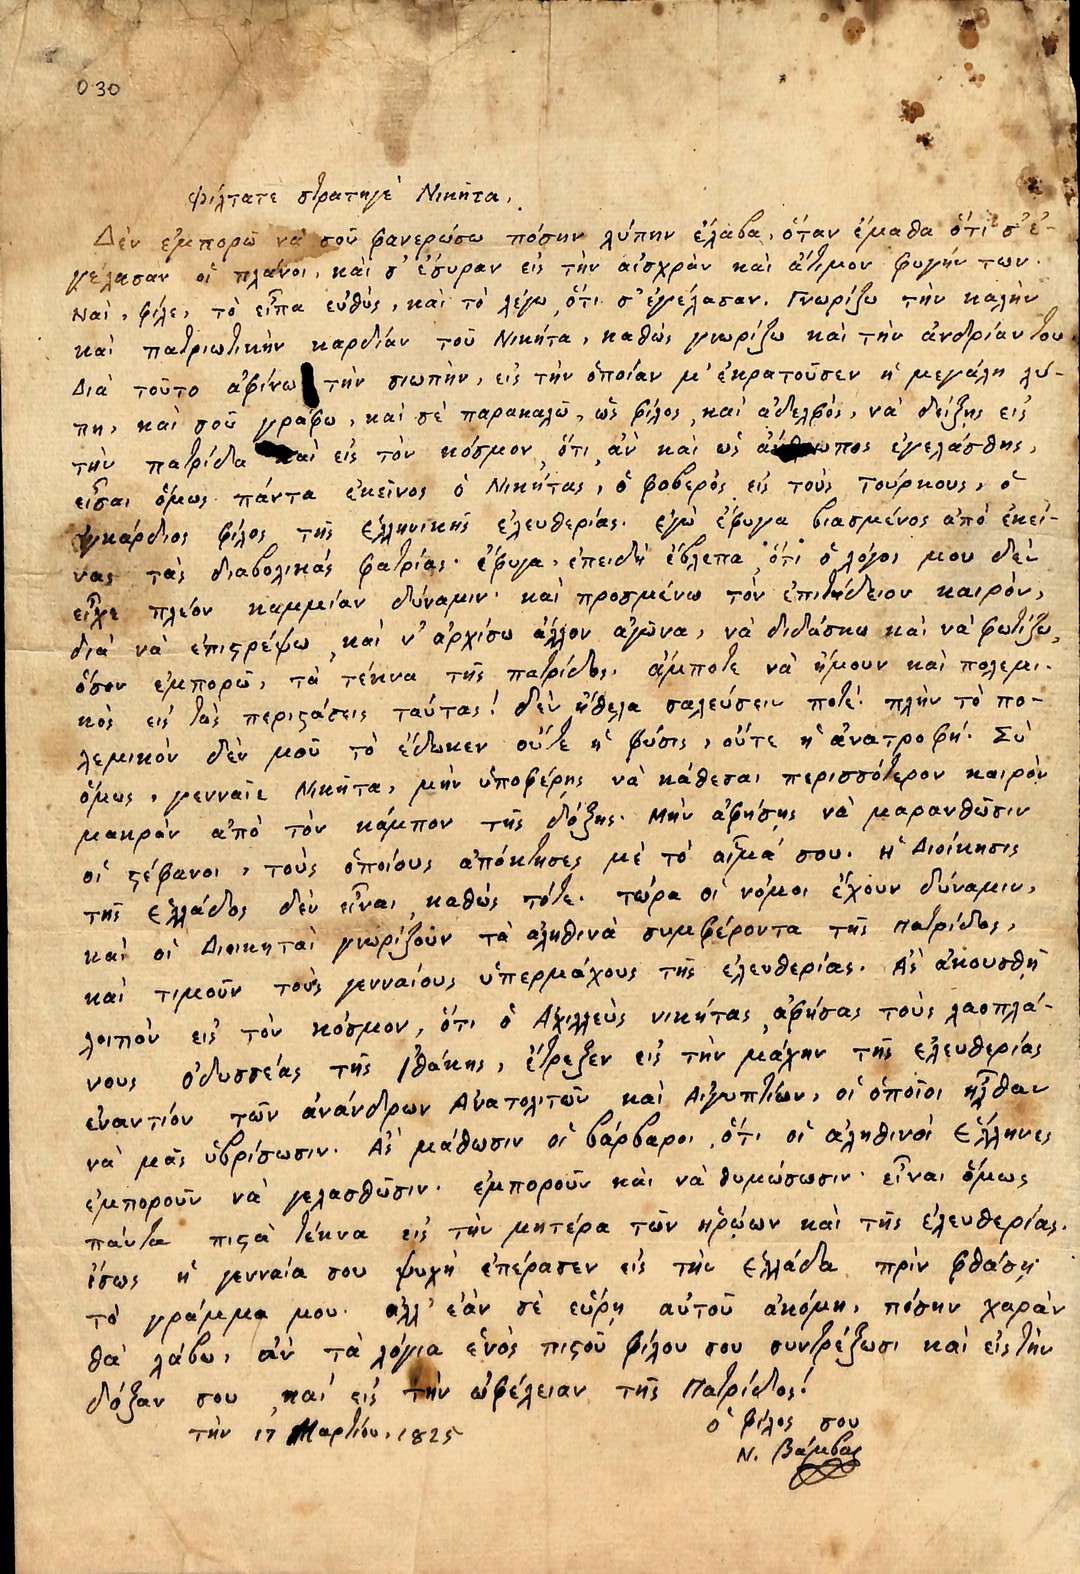 030
Φίλτατε στρατηγέ Νικήτα,
Δὲν ἐμπορῶ νὰ σοῦ φανερώσω πόσην λύπην ἔλαβα, ὅταν ἔμαθα ὅτι σ' ἐ-
γέλασαν οἱ πλάνοι, καὶ σ' ἔσυραν εἰς τὴν αἰσχρὰν καὶ ἄτιμον φυγήν των.
Ναὶ, φίλε, τὸ εἶπα εὐθὺς, καὶ τὸ λέγω, ὅτι σ' ἐγέλασαν. Γνωρίζω τὴν καλὴν
καὶ πατριωτικὴν καρδίαν τοῦ Νικήτα, καθὼς γνωρίζω καὶ τὴν ἀνδρίαν του.
Διὰ τοῦτο ἀφίνω τὴν σιωπὴν, εἰς τὴν ὁποίαν μ' ἐκρατοῦσεν ἡ μεγάλη λύ-
πη, καὶ σοῦ γράφω, καὶ σὲ παρακαλῶ, ὡς φίλος καὶ ἀδελφὸς, νὰ δείξῃς εἰς
τὴν πατρίδα καὶ εἰς τὸν κόσμον, ὅτι, ἂν καὶ ὡς ἄνθρωπος ἐγελάσθης,
εἶσαι ὅμως πάντα ἐκεῖνος ὁ Νικήτας, ὁ φοβερὸς εἰς τοὺς Τούρκους, ὁ
ἐγκάρδιος φίλος τῆς Ἑλληνικῆς ἐλευθερίας. ἐγὼ ἔφυγα βιασμένος ἀπὸ ἐκεί-
νας τὰς διαβολικὰς φατρίας· ἔφυγα, ἐπειδὴ ἔβλεπα ὅτι ὁ λόγος μου δὲν
εἶχε πλέον καμμίαν δύναμιν· καὶ προσμένω τὸν ἐπιτήδειον καιρὸν,
διὰ νὰ ἐπιϛρέψω, καὶ ν' ἀρχίσω ἄλλον ἀγῶνα, νὰ διδάσκω καὶ νὰ φωτίζω,
ὅσον ἐμπορῶ, τὰ τέκνα τῆς πατρίδος. ἄμποτε νὰ ἤμουν καὶ πολεμι-
κὸς εἰς τὰς περιϛάσεις ταύτας! δὲν ἤθελα σαλεύσειν ποτέ· πλὴν τὸ πο-
λεμικὸν δὲν μοῦ τὸ ἔδωκεν οὔτε ἡ φύσις, οὔτε ἡ ἀνατροφή. Σὺ
ὅμως, γενναῖε Νικήτα, μὴν ὑποφέρῃς νὰ κάθεσαι περισσότερον καιρὸν
μακρὰν ἀπὸ τὸν κάμπον τῆς δόξης. Μὴν ἀφήσῃς νὰ μαρανθῶσιν
οἱ ϛέφανοι, τοὺς ὁποίους ἀπόκτησες μὲ τὸ αἷμά σου. Ἡ Διοίκησις
τῆς Ἑλλάδος δὲν εἶναι, καθὼς τότε. τώρα οἱ νόμοι ἔχουν δύναμιν,
καὶ οἱ Διοικηταὶ γνωρίζουν τὰ ἀληθινὰ συμφέροντα τῆς Πατρίδος,
καὶ τιμοῦν τοὺς γενναίους ὑπερμάχους τῆς ἐλευθερίας. Ἂς ἀκουσθῇ
λοιπὸν εἰς τὸν κόσμον, ὅτι ὁ Ἀχιλλεὺς νικήτας, ἀφήσας τοὺς λαοπλά-
νους ὀδυσσέας τῆς Ἰθάκης, ἔτρεξεν εἰς τὴν μάχην τῆς ἐλευθερίας
ἐναντίον τῶν ἀνάνδρων Ἀνατολιτῶν καὶ Αἰγυπτίων, οἱ ὁποῖοι ἦλθαν
νὰ μᾶς ὑβρίσωσιν. Ἂς μάθωσιν οἱ βάρβαροι, ὅτι οἱ ἀληθινοὶ Ἕλληνες
ἐμποροῦν νὰ γελασθῶσιν· ἐμποροῦν καὶ νὰ θυμώσωσιν· εἶναι ὅμως
πάντα πιϛὰ τέκνα εἰς τὴν μητέρα τῶν ἡρώων καὶ τῆς ἐλευθερίας.
ἴσως ἡ γενναία σου ψυχὴ ἐπέρασεν εἰς τὴν Ἑλλάδα πρὶν φθάσῃ
τὸ γράμμα μου. ἀλλ' ἐὰν σὲ εὕρῃ αὐτοῦ ἀκόμη, πόσην χαρὰν
θὰ λάβω, ἂν τὰ λόγια ἑνὸς πιϛοῦ φίλου σου συντρέξωσι καὶ εἰς τὴν
δόξαν σου καὶ εἰς τὴν ὠφέλειαν τῆς Πατρίδος!
τὴν 17 Μαρτίου, 1825
ὁ φίλος σου
Ν. Βάμβας